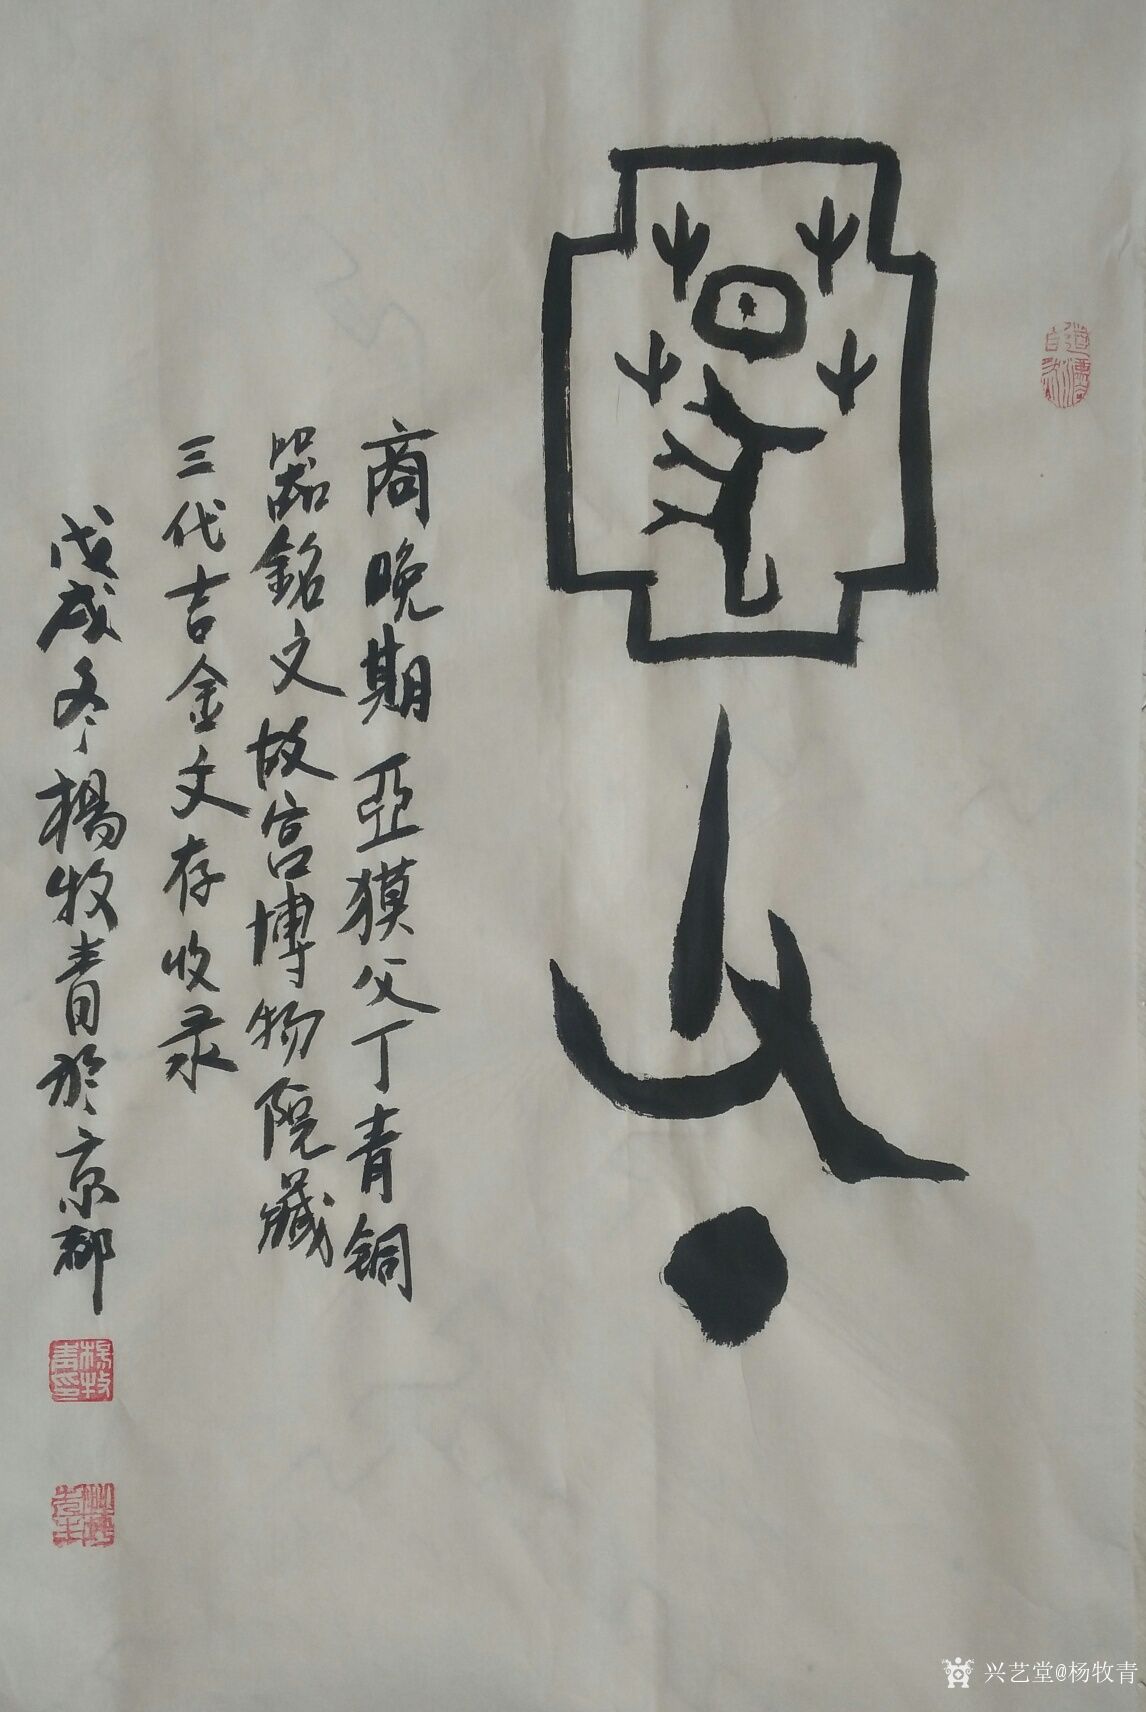 亞獏父丁
商晚期亞獏父丁青铜
器銘文故宫博物院藏
三代吉金文存收录
戊戌冬楊牧青於京都
楊牧青印
兴艺堂@杨牧青